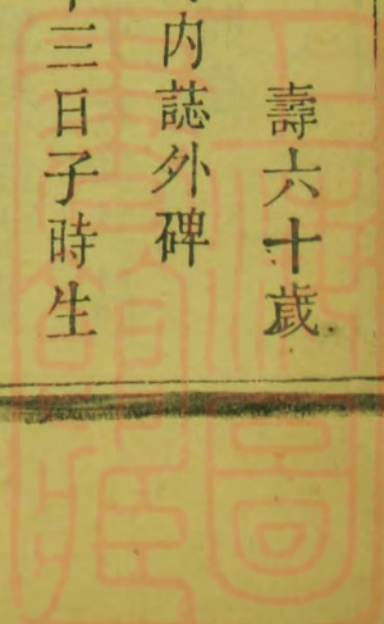 壽六十歲
内誌外碑
三日子時生